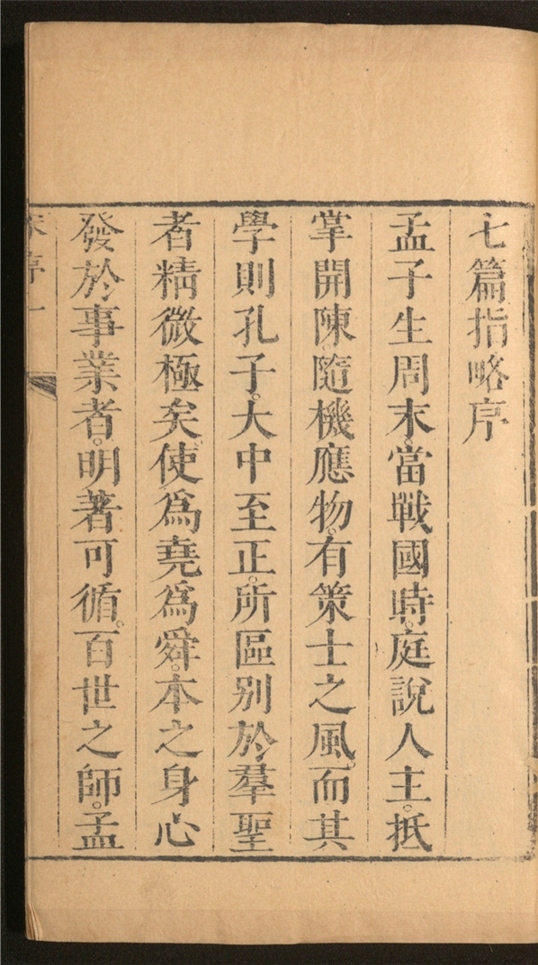 七篇指略序
孟子生周末。當戰國時。庭說人主。抵
掌開陳。隨機應物。有策士之風。而其
學則孔子。大中至正。所區别於羣聖
者精微極矣。使爲堯爲舜。本之身心
發於事業者。明著可循。百世之師。孟